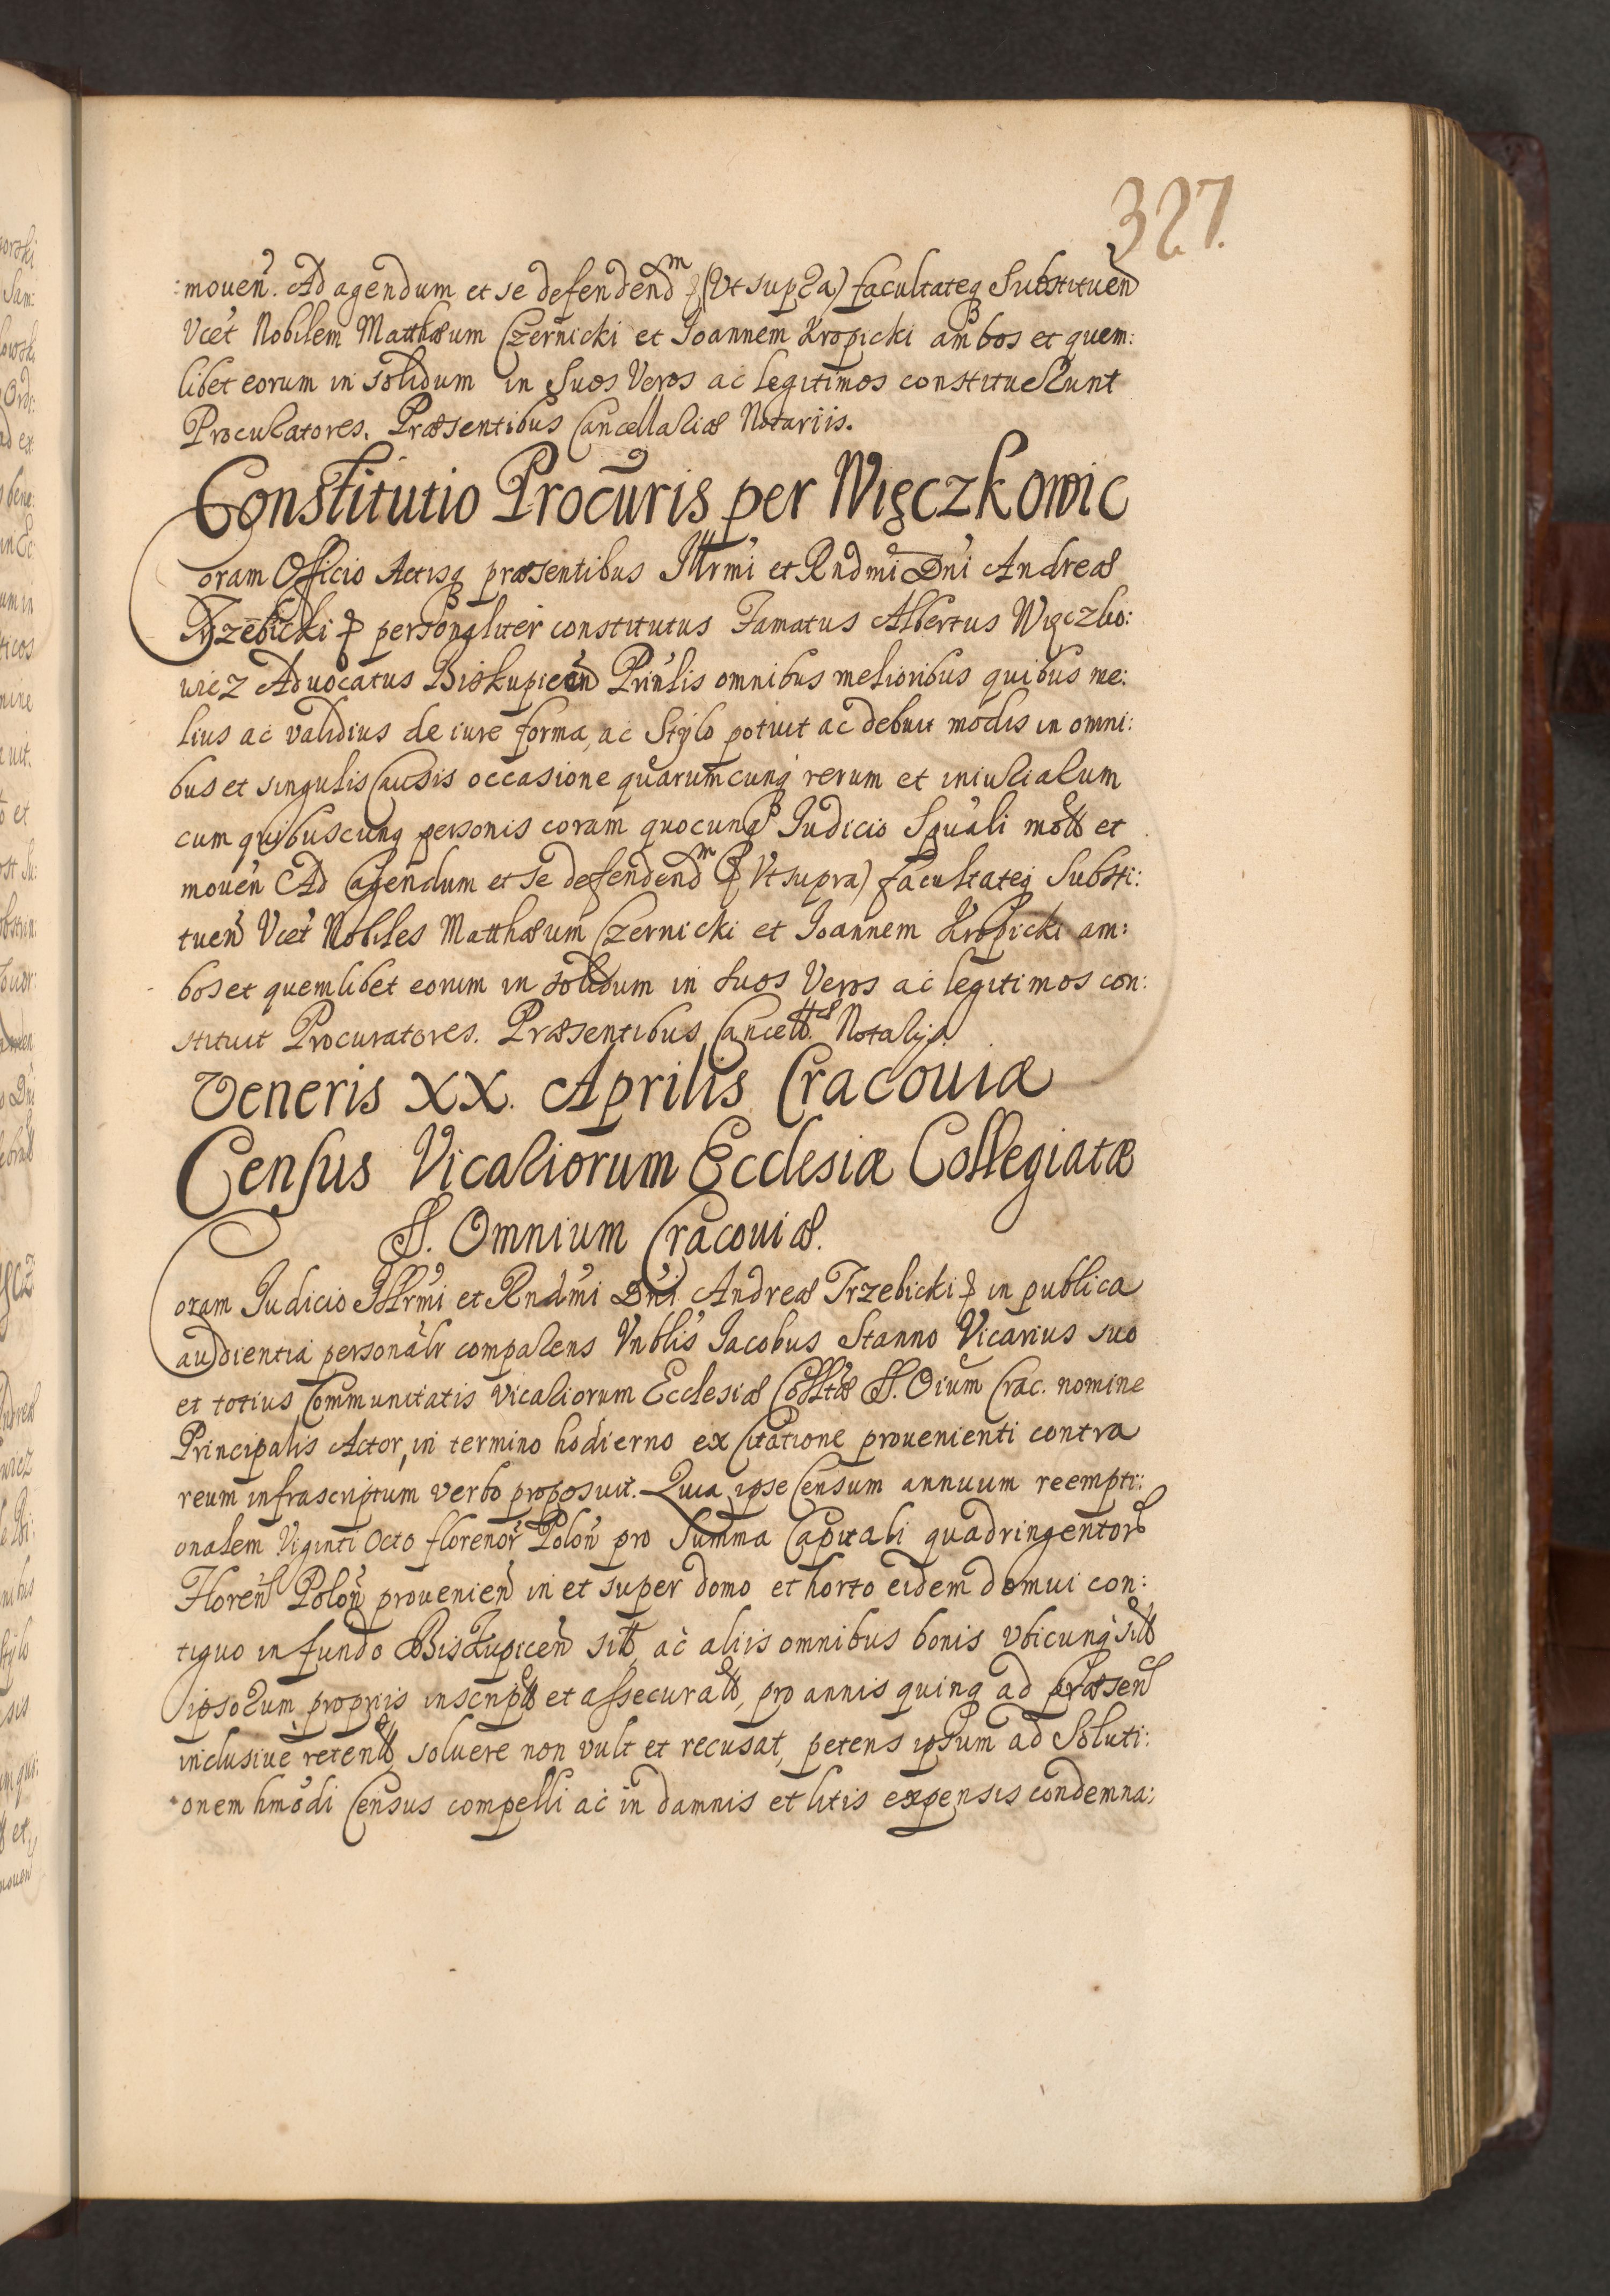 327.
:mouen̄. Ad agendum et se defendend͞m (Vt supra) facultateq Substituen̄
Vcet Nobilem Matthæum Czernicki et Joannem Kropicki ambos et quem:
libet eorum in solidum in Suos Veros ac legitimos constituerunt
Procuratores. Præsentibus Cancellariæ Notariis.
Constitutio Procuris per Więczkowic
Coram Officio Actisq præsentibus Illrmi et Rndmi Dni Andreæ
Trzebicki personaliter constitutus Famatus Albertus Więczko:
wicz Aduocatus Biskupicen̄ Prinlis omnibus melioribus quibus me:
lius ac validius de iure forma, ac Stylo potuit ac debuit modis in omni:
bus et singulis Causis occasione quarumcunq rerum et iniuriarum
cum quibuscunq personis coram quocunq Judicio Spuali mott et
mouen̄ Ad agendum et se defendend͞m (Vt supra) facultateq Substi:
tuen̄ Vcet Nobiles Matthæum Czernicki et Joannem Kropicki am:
bos et quemlibet eorum in solidum in suos Veros ac legitimos con:
stituit Procuratores. Præsentibus Cancellæ Notarijs.
Veneris XX. Aprilis Cracouiæ
Census Vicariorum Ecclesiæ Collegiatæ
SS. Omnium Cracouiæ.
Coram Judicio Illrmi et Rndmi Dni Andreæ Trzebicki in publica
audientia personalr comparens Vnblis Jacobus Stanno Vicarius suo
et totius Communitatis Vicariorum Ecclesiæ Colltæ SS. Oium Crac. nomine
Principalis Actor, in termino hodierno ex Citatione prouenienti contra
reum infrascriptum verbo proposuit. Quia ipse Censum annuum reempti:
onalem Viginti Octo florenor̄ Polon̄ pro Summa Capitali quadringentor
Floren̄ Polon̄ prouenien̄ in et super domo et horto eidem domui con:
tiguo in fundo Biskupicen̄ sitt, ac aliis omnibus bonis vbicunq sitt
ipsorum proprijs inscriptt et assecuratt, pro annis quinq ad præsen̄
inclusiue retentt, soluere non vult et recusat, petens ipsum ad Soluti:
onem hmodi Census compelli ac in damnis et litis expensis condemna: